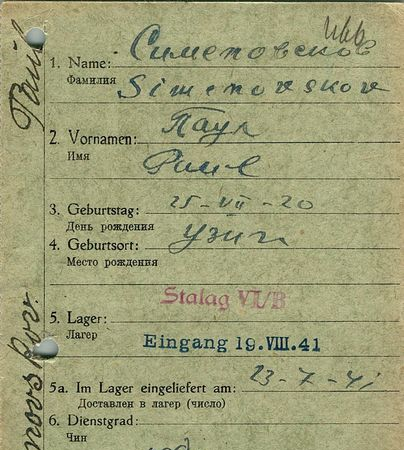 1. Name: Сименовсков
Фамилия Simenovskov
2. Vornamen: Паул
Имя Paul
3. Geburtstag: 25-VII-20
День рождения
4. Geburtsort:
Место рождения
Stalag VI/B
5. Lager:
Лагер Eingang 19. VIII. 41
5a. Im Lager eingeliefert am: 23-7-41
Доставлен в лагер (число)
6. Dienstgrad:
Чин